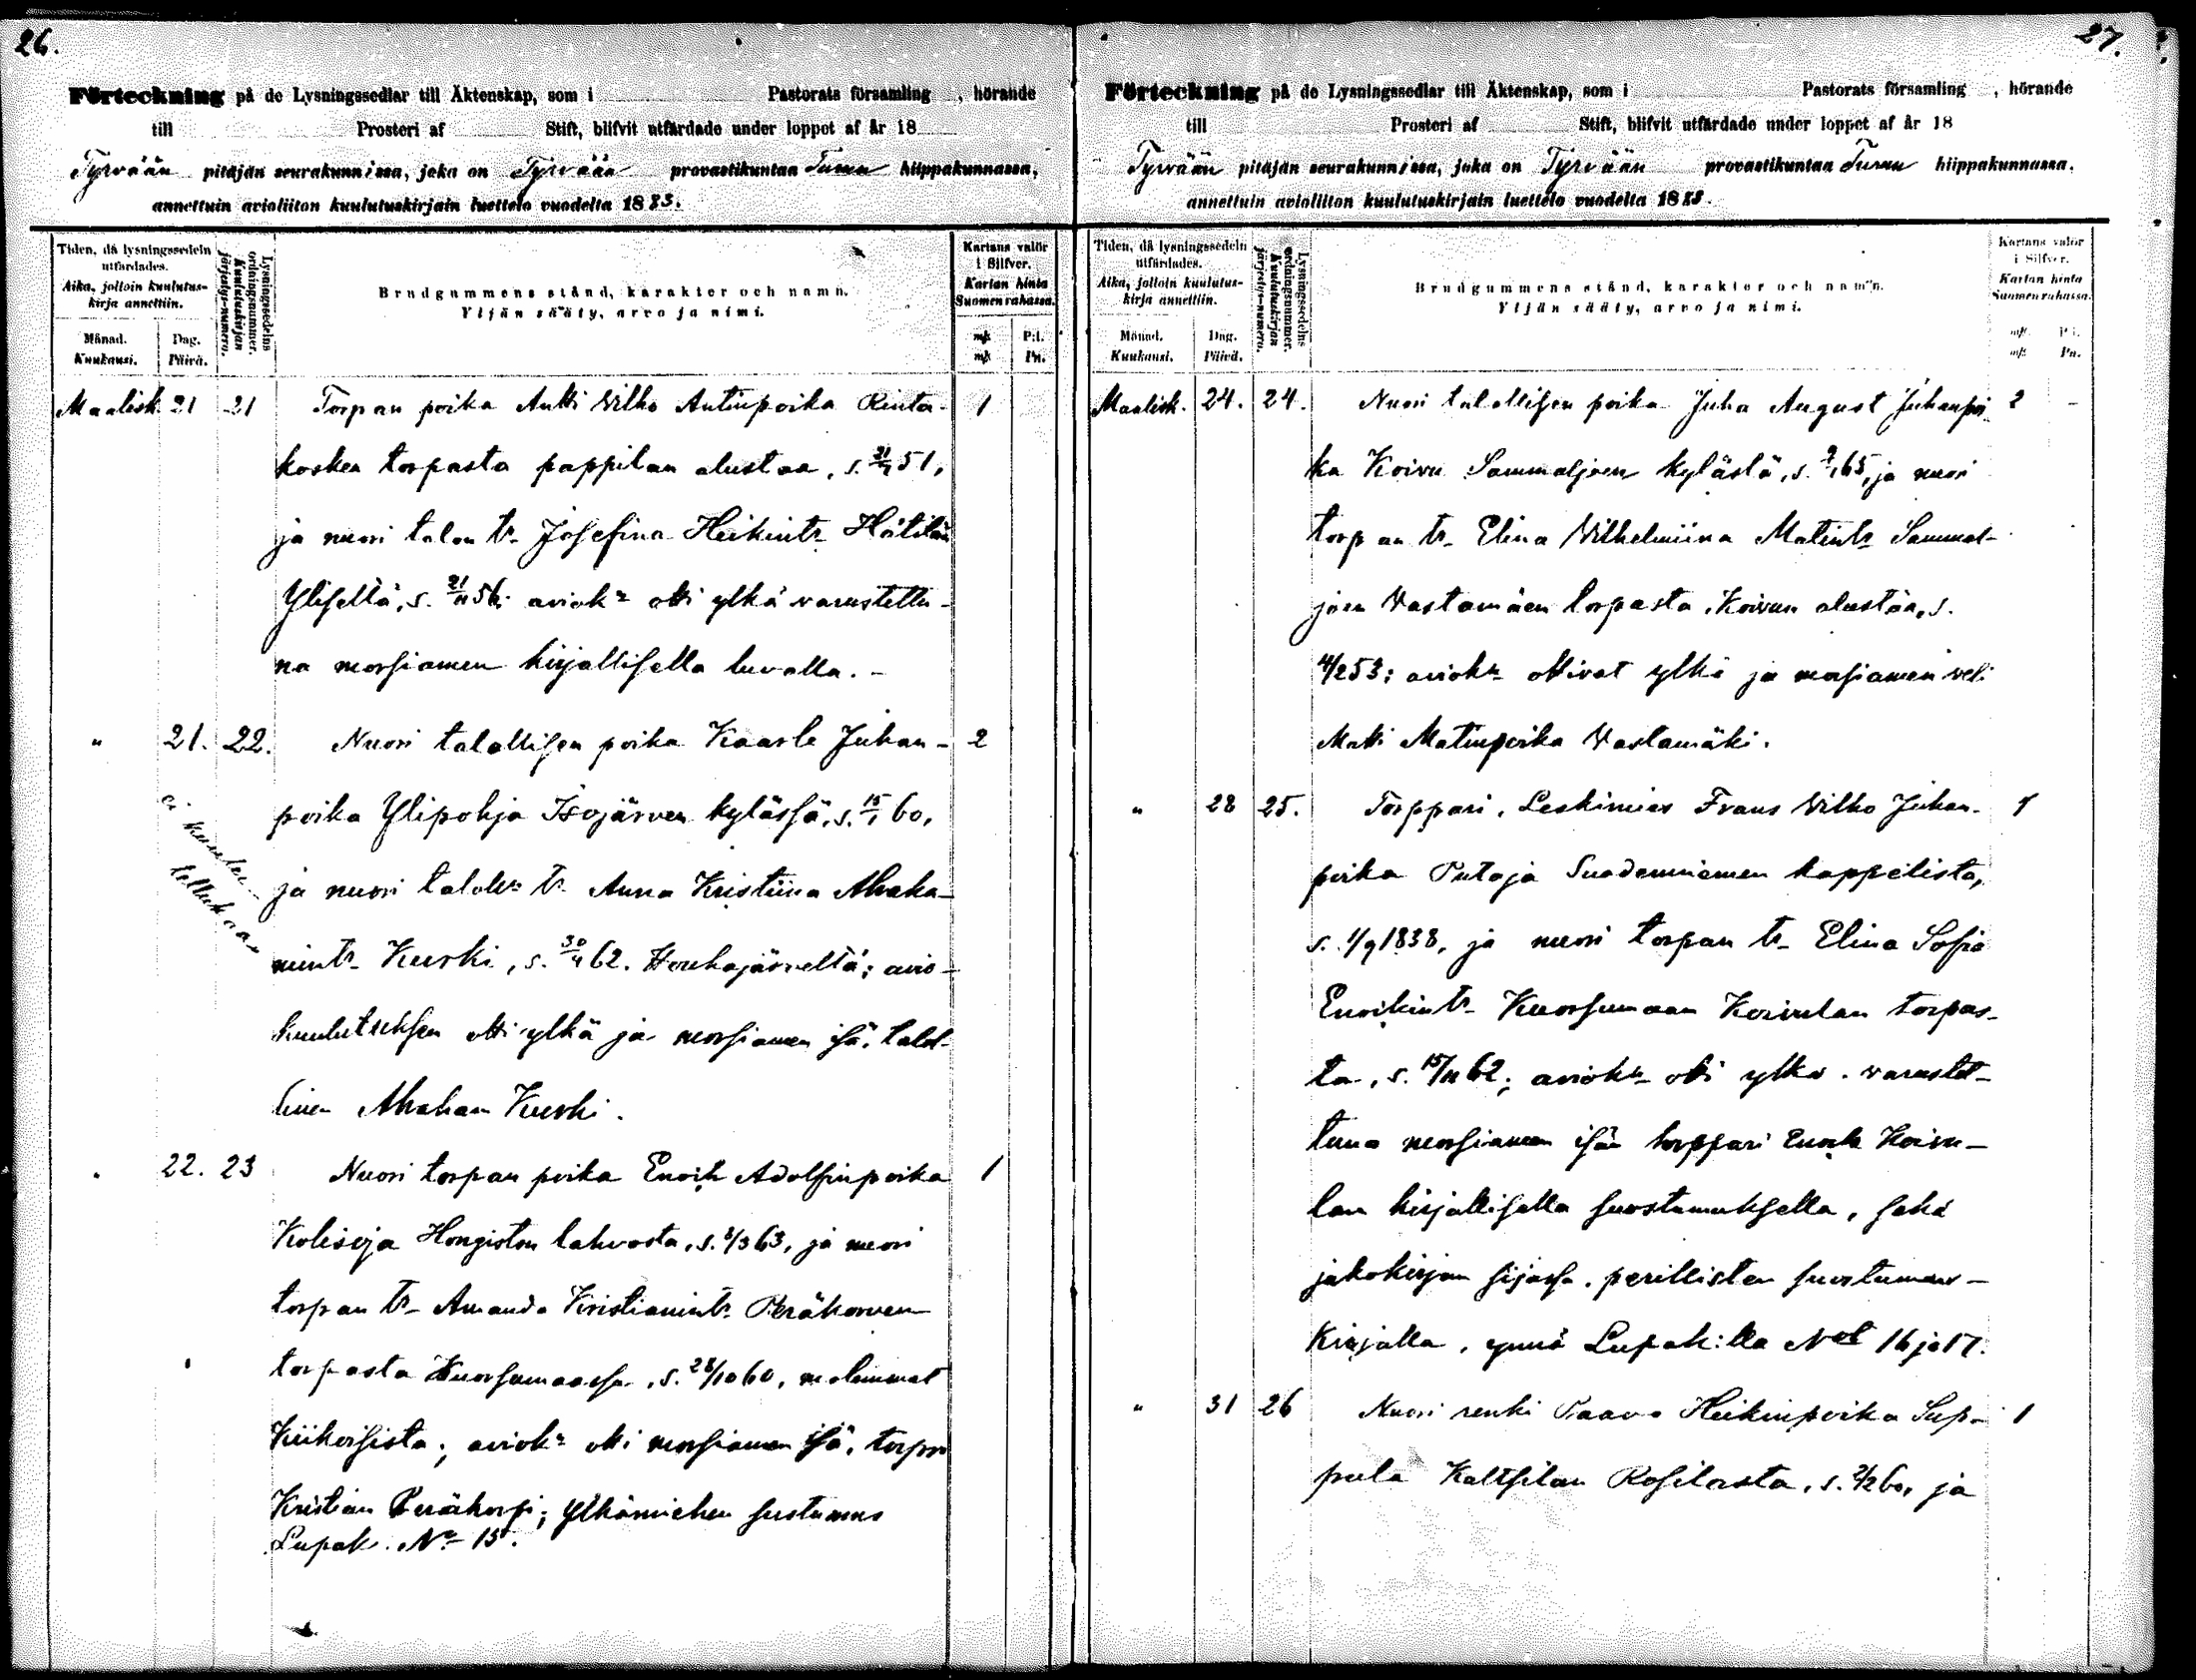 26.
Förteckning på de Lysningssedlar till Äktenskap, som i Pastorats församling , hörande
till Prosteri af Stift, blifvit utfärdade under loppet af år 18
Tyrvään pitäjän seurakunnissa, joka on Tyrvään provastikuntaa Turun hiippakunnassa,
annettuin avioliiton kuulutuskirjain luettelo vuodelta 1883.
Tiden, då lysningssedeln utfärdades.
Aika, jolloin kuulutus-kirja annettiin.
Månad. Kuukausi.
Dag. Päivä.
Lysningssedelns ordningsnummer.
Kuulutuskirjan järjestys-numero.
Brudgummens stånd, karakter och namn.
Yljän sääty, arvo ja nimi.
Kartans valör i Silfver.
Kartan hinta Suomen rahassa.
mk P:i.
mk Pn.
Maalisk. 21 21 Torpan poika Antti Wilho Antinpoika Rinta- 1
kosken torpasta pappilan alustaa, s. 51,
ja nuori talon tr. Josefina Heikintr.
Yliseltä, s. 21/11 56; aviok: otti ylkä varustettu-
na morsiamen kirjallisella luvalla. -
" 21. 22. Nuori talollisen poika Kaarle Juhan- 2
poika Ylipohja Isojärven kylässä, s. 15/1 60,
ei kuulu-
tettukaan
ja nuori talok: tr. Anna Kristiina Abraha-
mintr. Kurki, s. 30/4 62. Houhajärveltä; avio-
kuulutuksen otti ylkä ja morsiamen isä, talol-
linen Abraham Kurki.
" 22. 23 Nuori torpan poika Enoik Adolfinpoika 1
Koliseja Hongiston lahvosta, s. 8/3 63, ja nuori
torpan tr. Amanda Kristianintr. Peräkorven
torpasta Kuorsumaassa, s. 28/10 60, molemmat
Kiikoisista; aviok: otti morsiamen isä, torpp.
Kristian Peräkorpi; Ylkämiehen suostumus
Lupak. No 15.
27.
Förteckning på de Lysningssedlar till Äktenskap, som i Pastorats församling , hörande
till Prosteri af Stift, blifvit utfärdade under loppet af år 18
Tyrvään pitäjän seurakunnissa, joka on Tyrvään provastikuntaa Turun hiippakunnassa.
annettuin avioliiton kuulutuskirjain luettelo vuodelta 1883.
Tiden, då lysningssedeln utfärdades.
Aika, jolloin kuulutus-kirja annettiin.
Månad. Kuukausi.
Dag. Päivä.
Lysningssedelns ordningsnummer.
Kuulutuskirjan järjestys-numero.
Brudgummens stånd, karakter och namn.
Yljän sääty, arvo ja nimi.
Kartans valör i Silfver.
Kartan hinta Suomen rahassa.
mk P:i.
mk Pn.
Maalisk. 24. 24. Nuori talollisen poika Juha August Juhanpoi- 2 -
ka Koivu Sammaljoen kylästä, s. 65, ja nuori
torpan tr. Elina Wilhelmiina Matintr. Sammal-
joen Wastamäen torpasta, Koivun alustaa, s.
4/2 53; aviok: ottivat ylkä ja morsiamen veli
Matti Matinpoika Wastamäki.
" 28 25. Torppari, Leskimies Frans Wilho Juhan- 1
poika Putaja Suodenniemen kappelista,
s. 1/9 1838, ja nuori torpan tr. Elina Sofia
Enoikintr. Kuorsumaan Koivulan torpas-
ta, s. 15/11 62; aviok: otti ylkä, varustet-
tuna morsiamen isän torppari Enok Koivu-
lan kirjallisella suostumuksella, sekä
jakokirjan sijassa, perillisten suostumus-
kirjalla, ynnä Lupak:lla Not 16 ja 17.
" 31 26 Nuori renki Paavo Heikinpoika Sup- 1
pula Kaltsilan Rosilasta, s. 2/2 60, ja